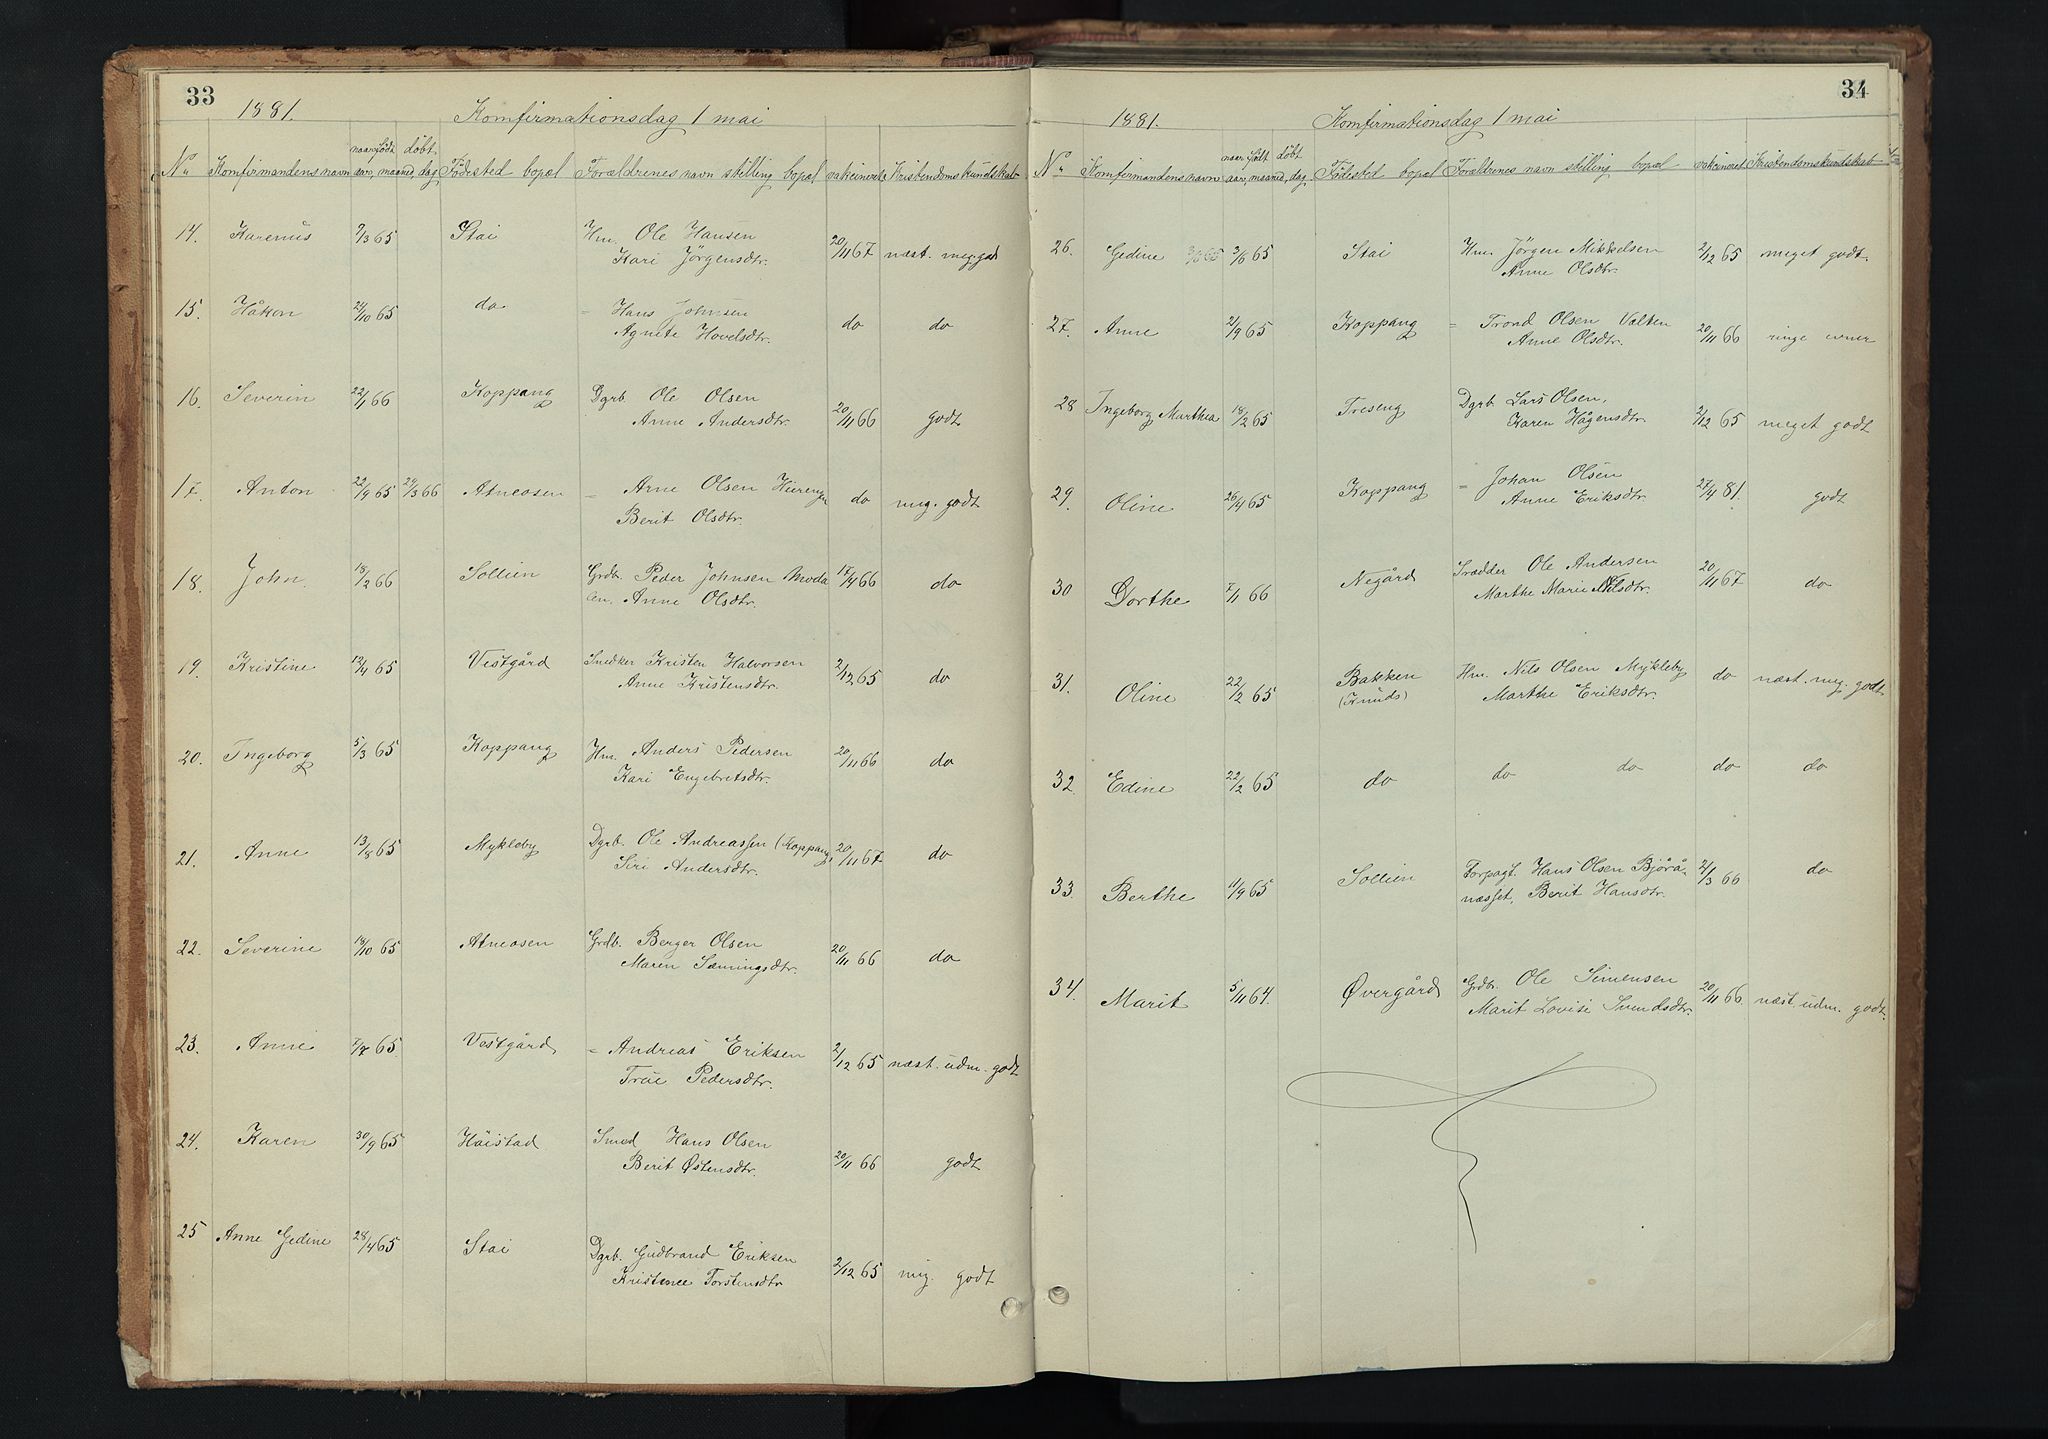 33
1881. Komfirmationsdag 1 mai
naar født døbt
No Komfirmandens navn aar, maaned, dag Fødested bopæl Forældrenes navn stilling bopæl vakcineret Kristendomskundskab
14. Karenus 9/3 65 Stai Hm. Ole Hansen 20/11 67 næst. meg. godt
Kari Jörgensdtr.
15. Håkon 24/10 65 do = Hans Johnsen do do
Agnete Hovelsdtr.
16. Severin 22/1 66 Koppang Dgrb. Ole Olsen 20/11 66 godt
Anne Andersdtr.
17. Anton 22/9 65 29/3 66 Atneosen = Arne Olsen do meg. godt
Berit Olsdtr.
18. John 18/2 66 Sollien Grdb. Peder Johnsen Moda 17/4 66 do
len. Anne Olsdtr.
19. Kristine 12/4 65 Vestgård Snedker Kristen Halvorsen 2/12 65 do
Anne Kristensdtr.
20. Ingeborg 5/3 65 Koppang Hm. Anders Pedersen 20/11 66 do
Kari Engebretsdtr.
21. Anne 13/8 65 Mykleby Dgrb. Ole Andreassen (Koppang) 20/11 67 do
Siri Andersdtr.
22. Severine 18/10 65 Atneosen Grdb. Berger Olsen 20/11 66 do
Maren Sæmingsdtr.
23. Anne 7/7 65 Vestgård = Andreas Eriksen 2/12 65 næst. udm. godt
Pedersdtr.
24. Karen 30/9 65 Häistad Smed Hans Olsen 20/11 66 godt
Berit Østensdtr.
25 Anne Gedine 28/4 65 Stai Dgrb. Gudbrand Eriksen 2/12 65 meg. godt
Torstensdtr
34
1881. Komfirmationsdag 1 mai
naar født døbt
No Komfirmandens navn aar, maaned, dag Fødested bopæl Forældrenes navn stilling bopæl vakcineret Kristendomskundskab
26. Gedine 3/6 65 3/6 65 Stai Hm. Jörgen Mikkelsen 2/12 65 meget godt.
Anne Olsdtr.
27. Anne 21/9 65 Koppang = Trond Olsen 20/11 66 ringe evner
Anne Olsdtr.
28 Ingeborg Marthea 18/2 65 Treseng Dgrb. Lars Olsen, 2/12 65 meget godt
Karen Hågensdtr.
29. Oline 26/4 65 Koppang = Johan Olsen 27/4 81. godt
Anne Eriksdtr.
30 Dorthe 7/11 66 Negård Skrædder Ole Andersen 20/11 67 do
Marthe Marie Olsdtr.
31. Oline 22/2 65 Bakken Hm. Nils Olsen Mykleby do næst. meg. godt
(Knuds) Marthe Eriksdtr.
32. Edine 22/2 65 do do do do do
33. Berthe 11/9 65 Sollien Forpagt. Hans Olsen Bjørå- 21/3 66 do
næsset, Berit Hansdtr.
34. Marit 5/11 64. Øvergård Grdbr. Ole Simensen 20/11 66 næst. udm. godt.
Marit Lovise Svendsdtr.